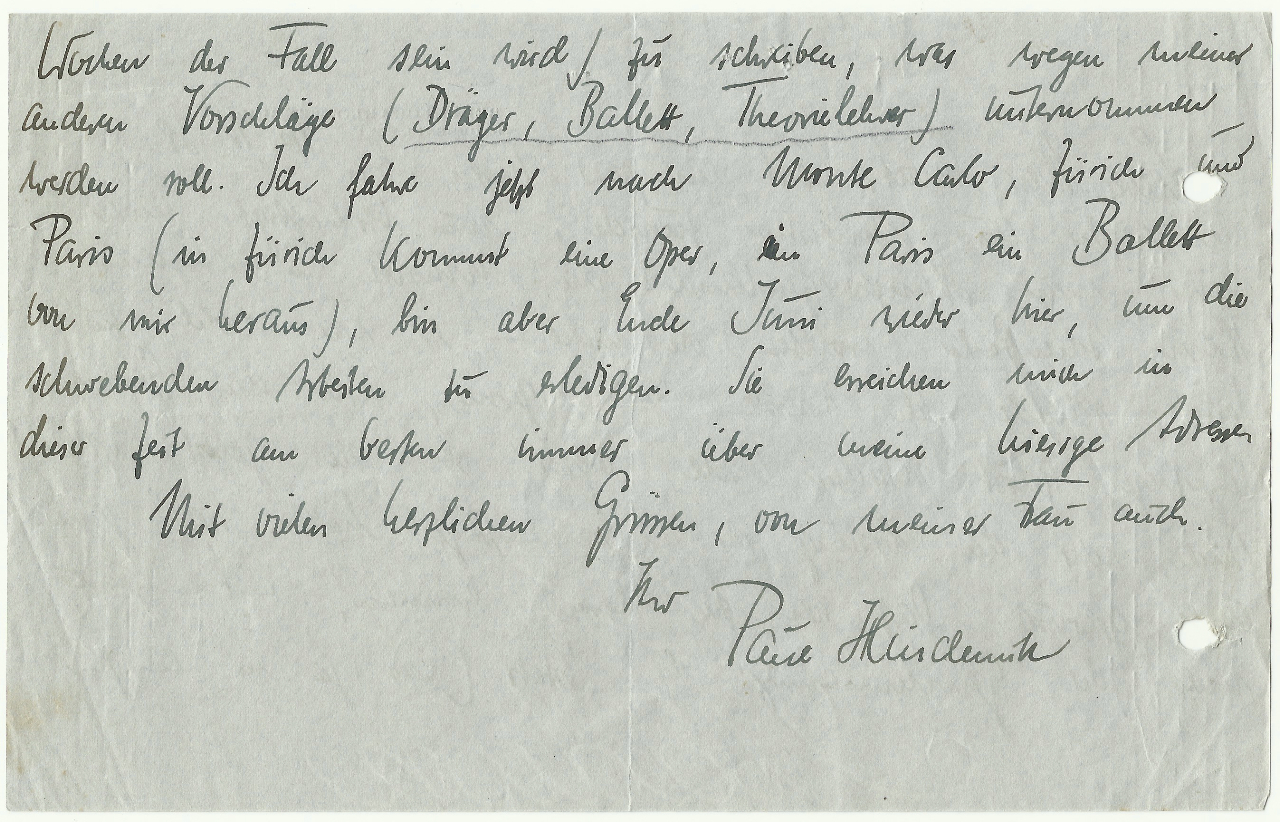 Wochen der Fall sein wird) zu schreiben, was wegen meiner
anderen Vorschläge (Dräger, Ballett, Theorielehrer) unternommen
werden soll. Ich fahre jetzt nach Monte Carlo, Zürich und
Paris (in Zürich kommt eine Oper, in Paris ein Ballett
von mir heraus), bin aber Ende Juni wieder hier, um die
schwebenden Arbeiten zu erledigen. Sie erreichen mich in
dieser Zeit am besten immer über meine hiesige Adresse
Mit vielen herzlichen Grüssen, von meiner Frau auch.
Ihr
Paul Hindemith